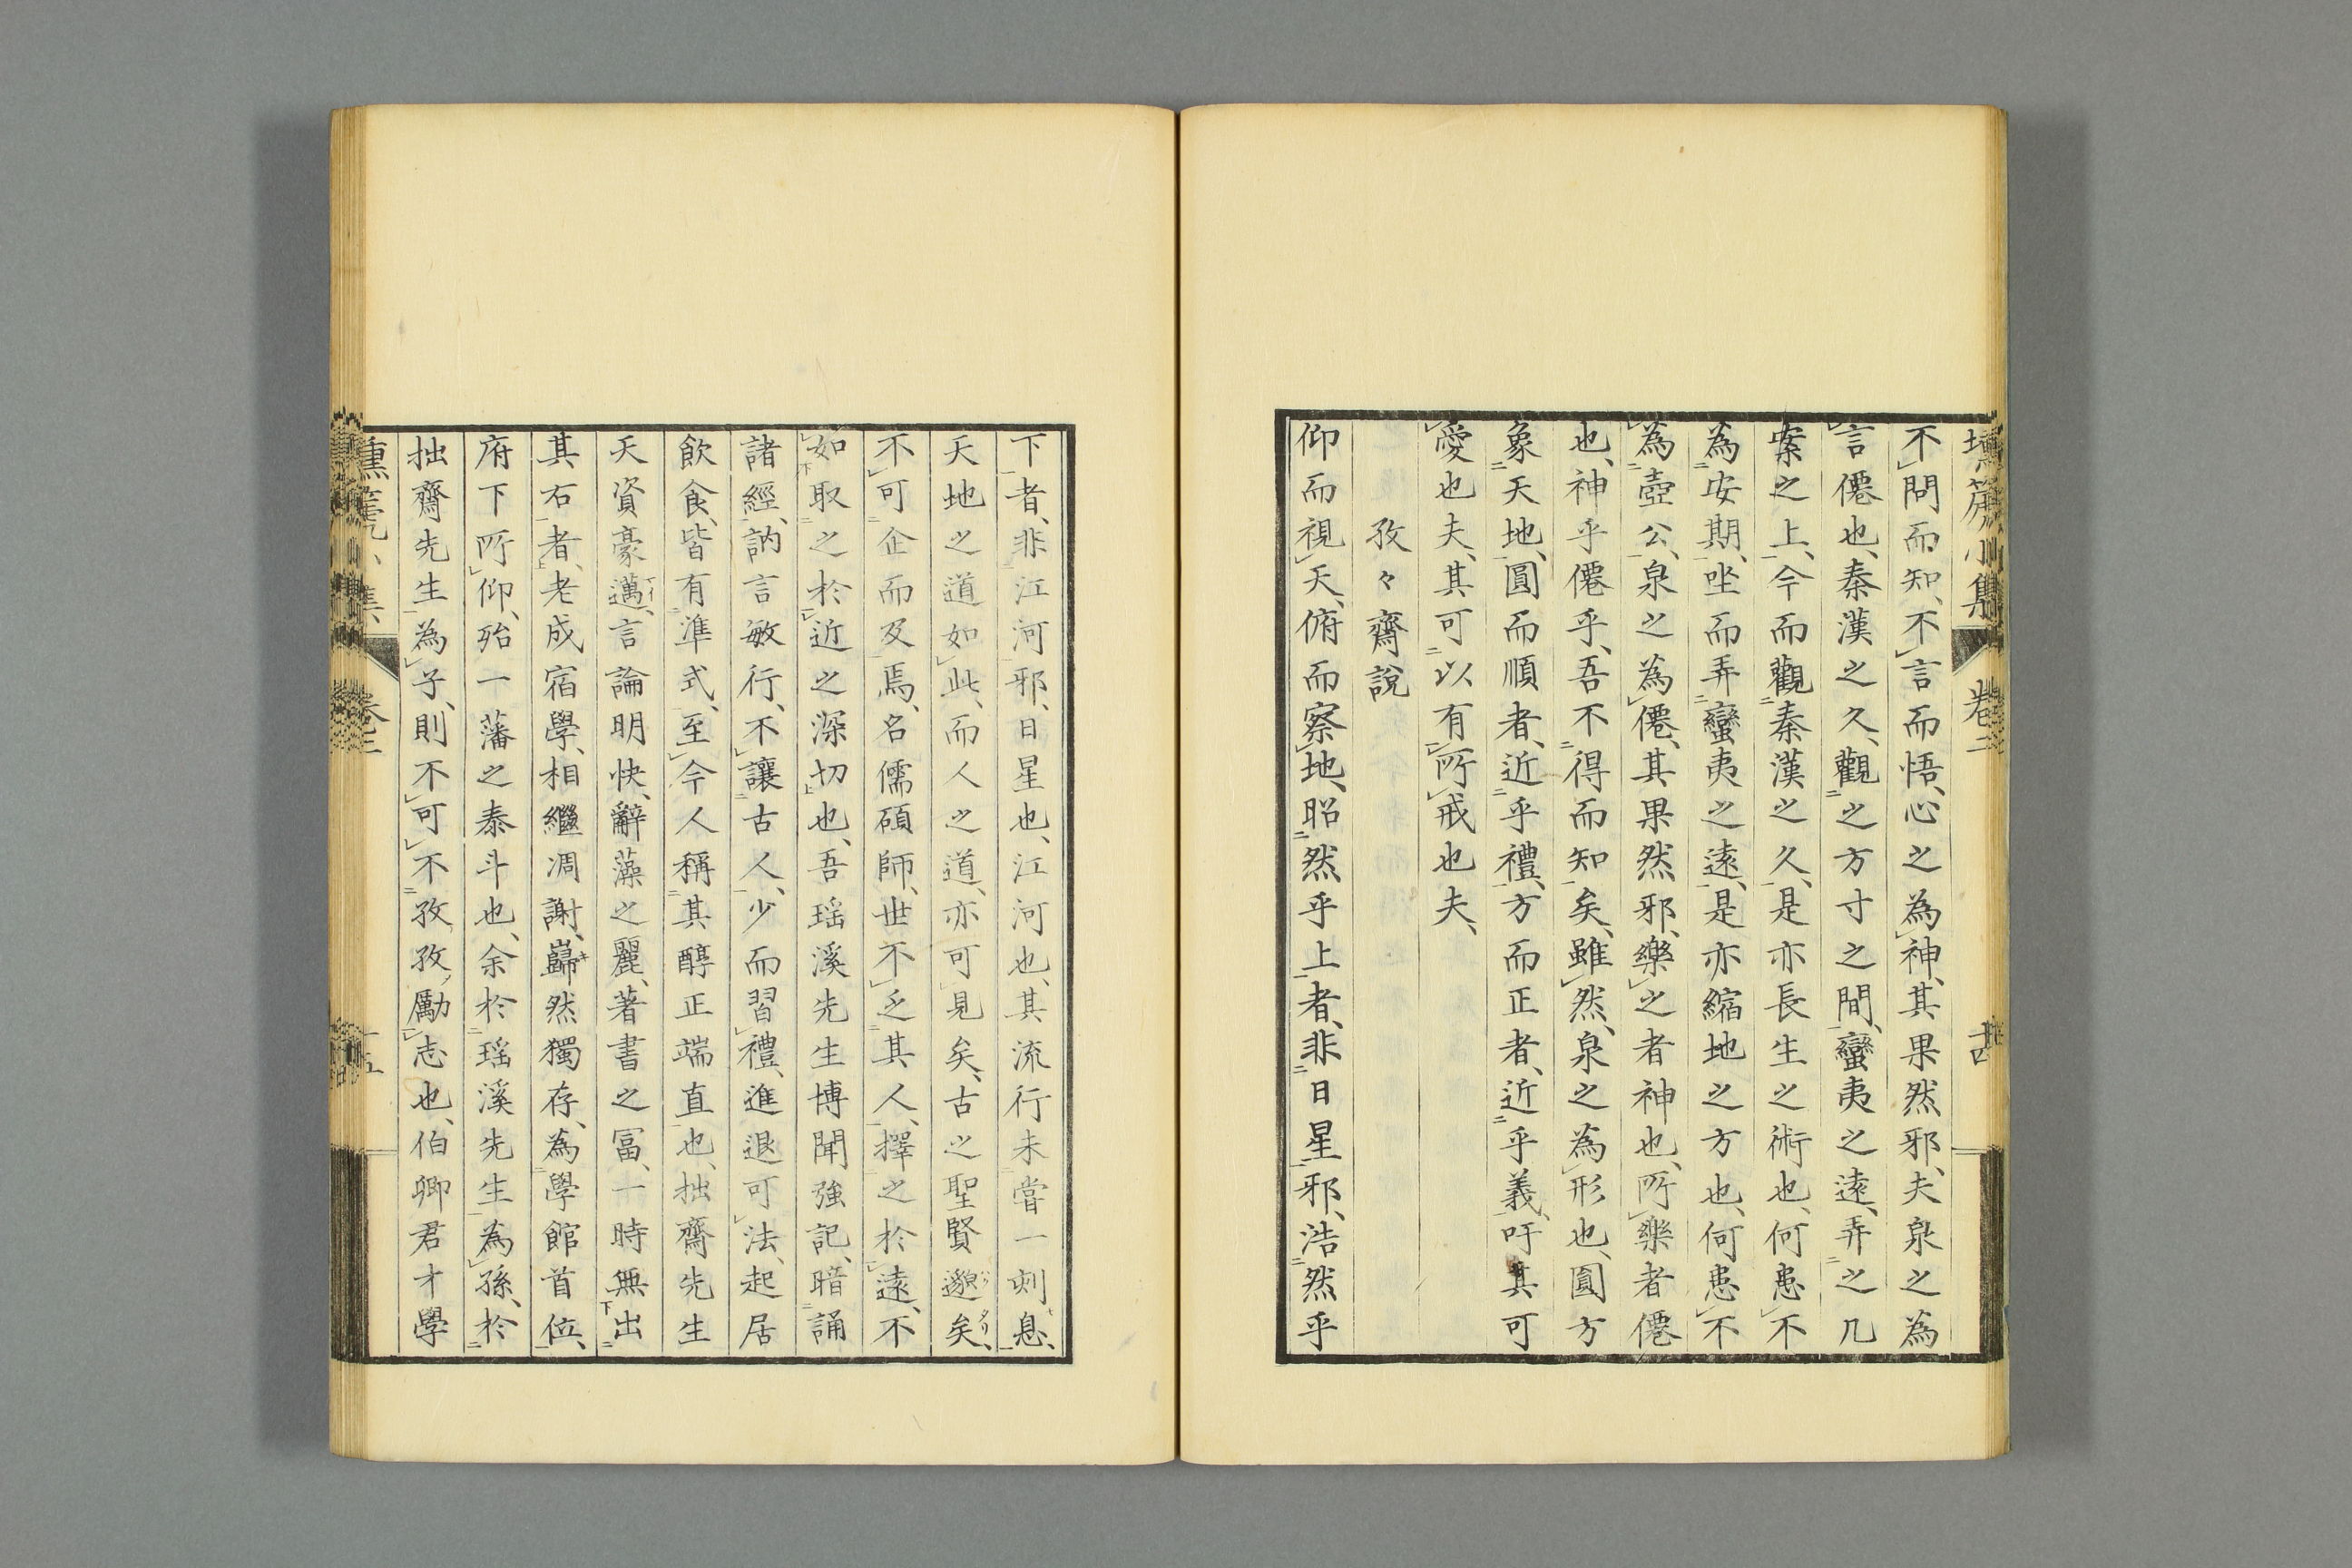 壎篪小集 卷二 十四
不問而知、不言而悟、心之為神、其果然邪、夫泉之為
言僊也、秦漢之久、觀之方寸之間、蠻夷之遠、弄之几
案之上、今而觀秦漢之久、是亦長生之術也、何患不
為安期、坐而弄蠻夷之遠、是亦縮地之方也、何患不
為壺公、泉之為僊、其果然邪、樂之者神也、所樂者僊
也、神乎僊乎、吾不得而知矣、雖然、泉之為形也、圓方
象天地、圓而順者、近乎禮、方而正者、近乎義、吁其可
愛也夫、其可以有所戒也夫、
孜々齋說
仰而視天、俯而察地、昭然乎上者、非日星邪、浩然乎
下者、非江河邪、日星也、江河也、其流行未嘗一刻息、
天地之道如此、而人之道、亦可見矣、古之聖賢邈矣、
不可企而及焉、名儒碩師、世不乏其人、擇之於遠、不
如取之於近之深切也、吾瑤溪先生博聞強記、暗誦
諸經、訥言敏行、不讓古人、少而習禮、進退可法、起居
飲食、皆有準式、至今人稱其醇正端直也、拙齋先生
天資豪邁、言論明快、辭藻之麗、著書之富、一時無出
其右者、老成宿學、相繼凋謝、巋然獨存、為學館首位、
府下所仰、殆一藩之泰斗也、余於瑤溪先生為孫、於
拙齋先生為子、則不可不孜孜勵志也、伯卿君才學
卷二 十五